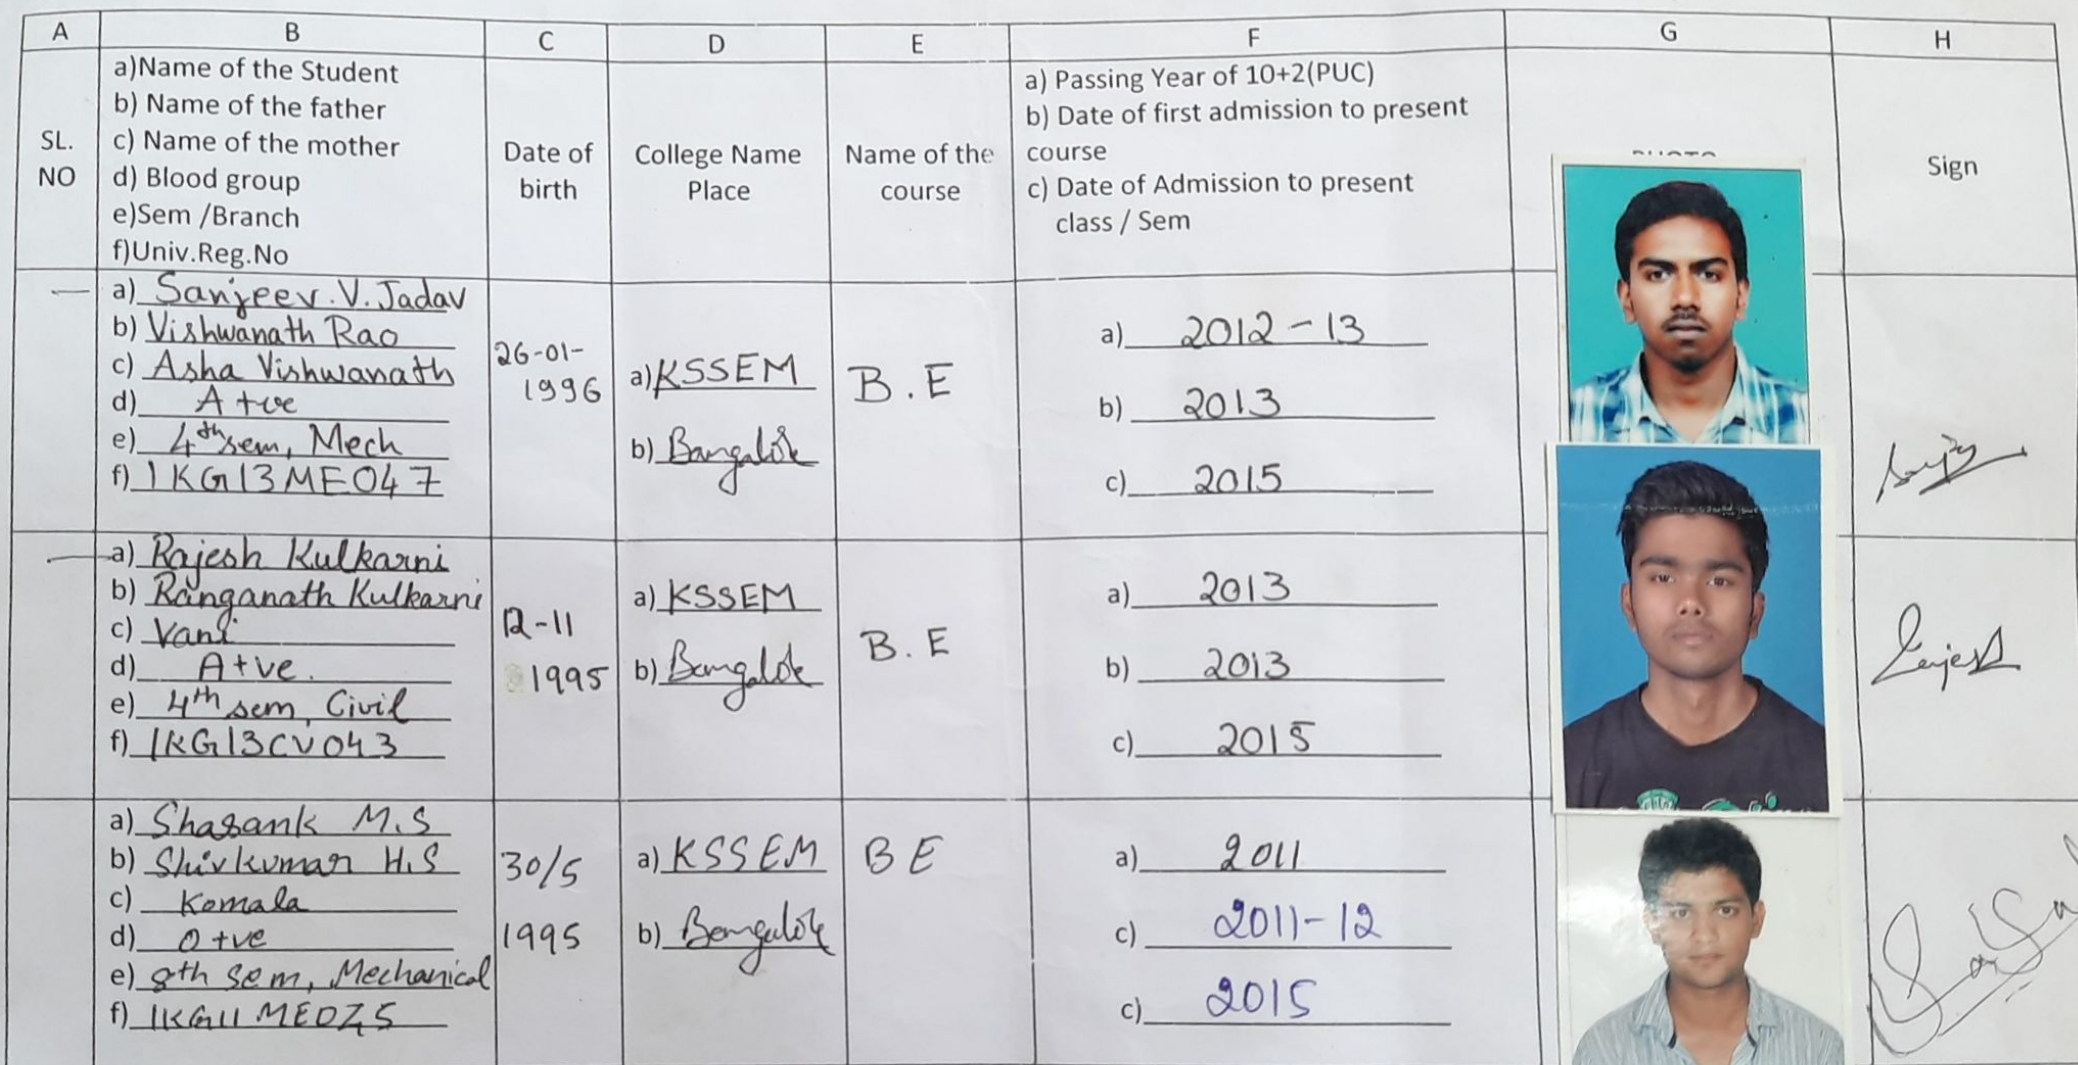 A B C D E F G H
SL.
NO
a)Name of the Student
b) Name of the father
c) Name of the mother
d) Blood group
e)Sem /Branch
f)Univ.Reg.No
Date of
birth
College Name
Place
Name of the
course
a) Passing Year of 10+2(PUC)
b) Date of first admission to present
course
c) Date of Admission to present
class / Sem
Sign
a) Sanjeev.V.Jadav
b) Vishwanath Rao
c) Asha Vishwanath
d) A +ve
e) 4th sem, Mech
f) 1KG13ME047
26-01-
1996
a) KSSEM
b) Bangalore
B.E
a) 2012-13
b) 2013
c) 2015
a) Rajesh Kulkarni
b) Ranganath Kulkarni
c) Vani
d) A+ve.
e) 4th sem, Civil
f) 1KG13CV043
12-11
1995
a) KSSEM
b) Bangalore
B.E
a) 2013
b) 2013
c) 2015
Rajesh
a) Shasank M.S
b) Shivkumar H.S
c) Komala
d) O +ve
e) 8th sem, Mechanical
f) 1KG11ME075
30/5
1995
a) KSSEM
b) Bangalore
BE
a) 2011
c) 2011-12
c) 2015